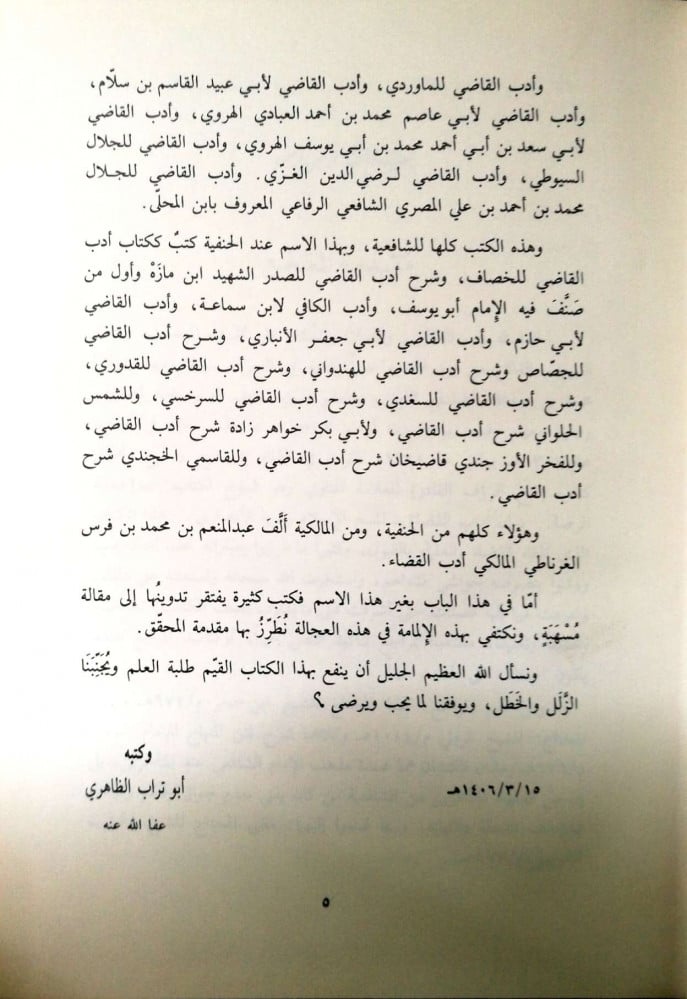 وأدب القاضي للماوردي، وأدب القاضي لأبي عبيد القاسم بن سلّام،
وأدب القاضي لأبي عاصم محمد بن أحمد العبادي الهروي، وأدب القاضي
لأبي سعد بن أبي أحمد محمد بن أبي يوسف الهروي، وأدب القاضي للجلال
السيوطي، وأدب القاضي لرضي الدين الغزّي. وأدب القاضي للجلال
محمد بن أحمد بن علي المصري الشافعي الرفاعي المعروف بابن المحلّى.
وهذه الكتب كلها للشافعية، وبهذا الاسم عند الحنفية كتبٌ ككتاب أدب
القاضي للخصاف، وشرح أدب القاضي للصدر الشهيد ابن مازَهْ وأول من
صَنَّفَ فيه الإمام أبو يوسف، وأدب الكافي لابن سماعة، وأدب القاضي
لأبي حازم، وأدب القاضي لأبي جعفر الأنباري، وشرح أدب القاضي
للجصّاص وشرح أدب القاضي للهندواني، وشرح أدب القاضي للقدوري،
وشرح أدب القاضي للسغدي، وشرح أدب القاضي للسرخسي، وللشمس
الحلواني شرح أدب القاضي، ولأبي بكر خواهر زادة شرح أدب القاضي،
وللفخر الأوز جندي قاضيخان شرح أدب القاضي، وللقاسمي الخجندي شرح
أدب القاضي.
وهؤلاء كلهم من الحنفية، ومن المالكية أَلَّفَ عبدالمنعم بن محمد بن فرس
الغرناطي المالكي أدب القضاء.
أمّا في هذا الباب بغير هذا الاسم فكتب كثيرة يفتقر تدوينُها إلى مقالة
مُسْهَبَةٍ، ونكتفي بهذه الإلمامة في هذه العجالة نُطَرِّزُ بها مقدمة المحقّق.
ونسأل الله العظيم الجليل أن ينفع بهذا الكتاب القيّم طلبة العلم ويُجَنِّبَنَا
الزَّلَل والخَطَل، ويوفقنا لما يحب ويرضى ؟
وكتبه
أبو تراب الظاهري
١٤٠٦/٣/١٥هـ
عفا الله عنه
٥